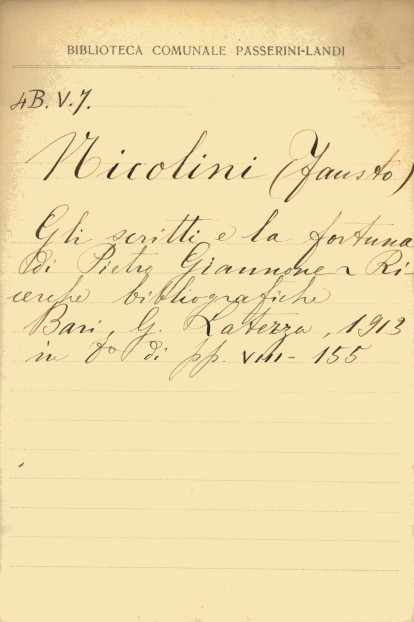 BIBLIOTECA COMUNALE PASSERINI-LANDI
4B.V.7.
Nicolini (Fausto)
Gli scritti e la fortuna
di Pietro Giannone ~ Ri-
cerche bibliografiche
Bari, G. Laterza, 1913
in 8° di pp. VIII - 155